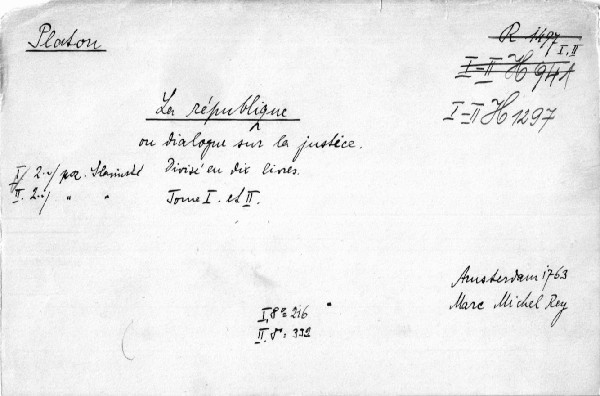 Platon
R 1497 I.II
I-II H 941
I-II H 1297
La république
ou dialogue sur la justice.
I/ 2.ɥ poz. Divisé en dix livres.
II. 2.ɥ " " Tome I. et II.
Amsterdam 1763
Marc Michel Rey
I, 8° 216
II. 8° 332